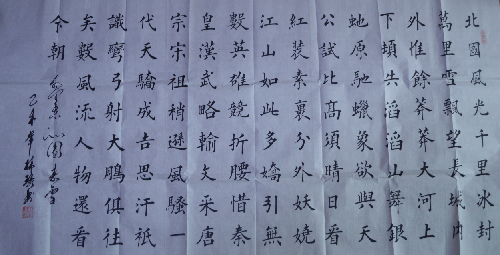 北國風光千里冰封
萬里雪飄望長城内
外惟餘莽莽大河上
下頓失滔滔山舞銀
蛇原馳蠟象欲與天
公試比高須晴日看
紅裝素裹分外妖嬈
江山如此多嬌引無
數英雄競折腰惜秦
皇漢武略輸文采唐
宗宋祖稍遜風騷一
代天驕成吉思汗祇
識彎弓射大鵰俱往
矣數風流人物還看
今朝 沁園春雪